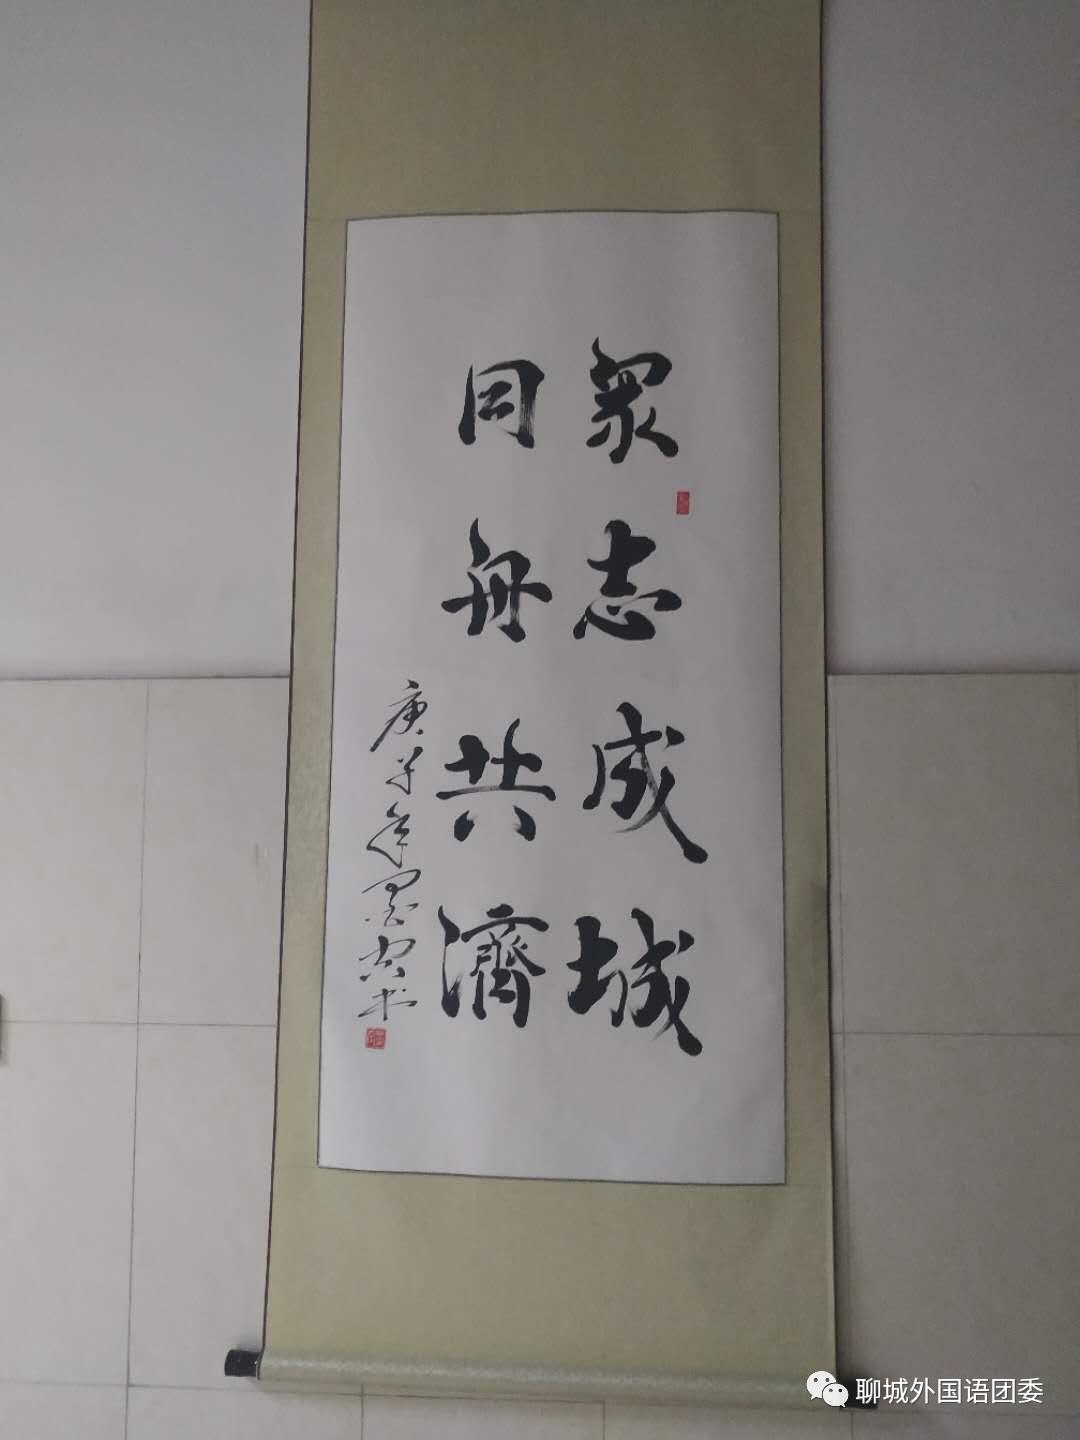 眾志成城
同舟共濟
庚子年墨安书
聊城外国语团委